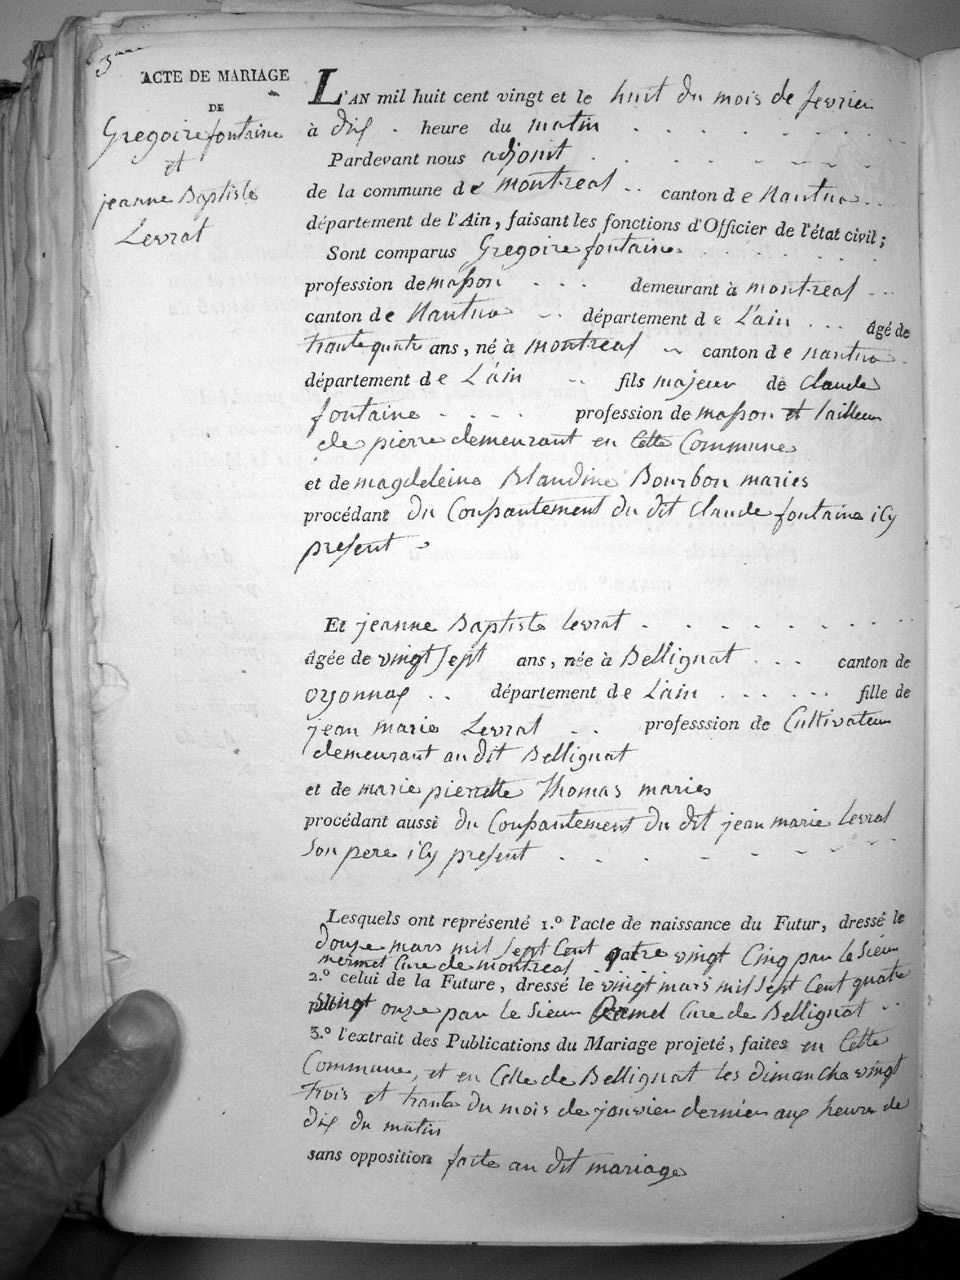 3me
ACTE DE MARIAGE
DE
Gregoire fontaine
et
jeanne Baptiste
Levrat
L'AN mil huit cent vingt et le huit du mois de fevrier
à dix . heure du matin . . . . . . . .
Pardevant nous adjoint . . . . . . . .
de la commune de montreal .. canton de Nantua ...
département de l'Ain, faisant les fonctions d'Officier de l'état civil;
Sont comparus Gregoire fontaine . . . . . . .
profession de masson . . . . demeurant à montreal ...
canton de Nantua .. département de L'ain ... âgé de
trante quatre ans, né à montreal .. canton de nantua .
département de L'ain .. fils majeur de Claude
fontaine . . . . profession de masson et tailleur
de pierre demeurant en Cette Commune
et de magdeleine Blandine Bourbon maries
procédant du Consantement du dit Claude fontaine icy
present .
Et jeanne Baptiste levrat . . . . . . . . .
âgée de vingt sept ans, née à Bellignat ... canton de
oyonnax .. département de L'ain . . . . . . fille de
jean marie Levrat .. professsion de Cultivateur
demeurant au dit Bellignat
et de marie pierrette Thomas maries
procédant aussi du Consantement du dit jean marie Levrat
Son pere icy present . . . . . . . . .
Lesquels ont représenté 1.º l'acte de naissance du Futur, dressé le
douze mars mil sept Cent quatre vingt Cinq par le Sieur
mermet Cure de montreal
2.º celui de la Future, dressé le vingt mars mil sept Cent quatre
vingt onze par le Sieur Cure de Bellignat ..
3.º l'extrait des Publications du Mariage projeté, faites en Cette
Commune, et en Celle de Bellignat les dimanche vingt
trois et trante du mois de janvier dernier aux heure de
dix du matin
sans opposition faite au dit mariage